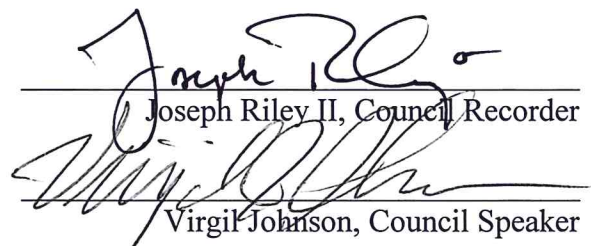 Joseph Riley
Joseph Riley II, Council Recorder
Virgil Johnson, Council Speaker